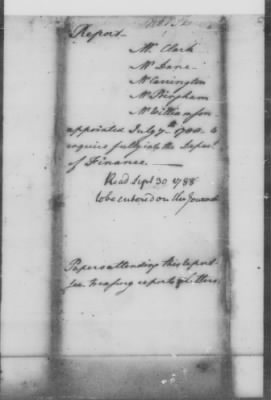 Report
Mr. Clark
Mr. Dane
Mr. Carrington
Mr. Bingham
Mr. Williamson
appointed July 7th 1788 to
enquire fully into the Depart.t
of Finance.
Read Sept 30 1788
to be entered on the Journal
Papers attending this report
see Treasury reports & Letters